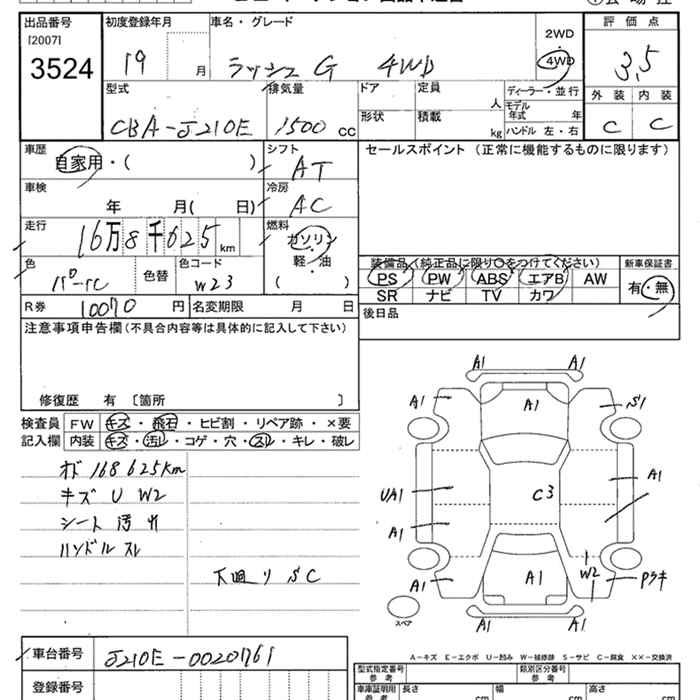 出品番号 初度登録年月 車名・グレード 評価点
[2007]
3524 19 月 ラッシュ G 4WD 2WD 4WD 3,5
型式 排気量 ドア 定員 人 ディーラー・並行 外装 内装
CBA-J210E 1500 cc 形状 積載 kg モデル年式 年 ハンドル 左・右 C C
車歴 自家用・( ) シフト AT セールスポイント (正常に機能するものに限ります)
車検 年 月( 日) 冷房 AC
走行 16万8千625 km 燃料 ガソリン 軽・油 ( )
色 パール 色替 色コード W23
装備品(純正品に限り○をつけてください) 新車保証書
PS PW ABS エアB AW 有・無
SR ナビ TV カワ
R券 10070 円 名変期限 月 日 後日品
注意事項申告欄(不具合内容等は具体的に記入して下さい)
修復歴 有 〔箇所 〕
検査員 FW キズ・飛石・ヒビ割・リペア跡・×要
記入欄 内装 キズ・汚レ・コゲ・穴・スレ・キレ・破レ
オド 168625km
キズ U W2
シート 汚レ
ハンドル スレ
下廻り SC
A1 A1
A1 A1 S1
C3 A1
UA1
A1
A1 A1 W2 Pラキ
スペア A1 A1
A-キズ E-エクボ U-凹み W-補修跡 S-サビ C-腐食 ××-交換済
車台番号 J210E-0020761
登録番号
型式指定番号 参考 類別区分番号 参考
車庫証明用 参考 長さ cm 幅 cm 高さ cm